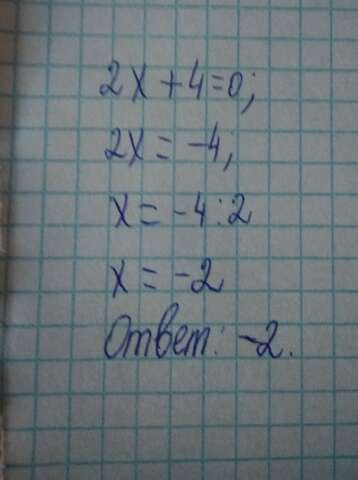 2x + 4 = 0;
2x = -4;
x = -4 : 2
x = -2
Ответ: -2.